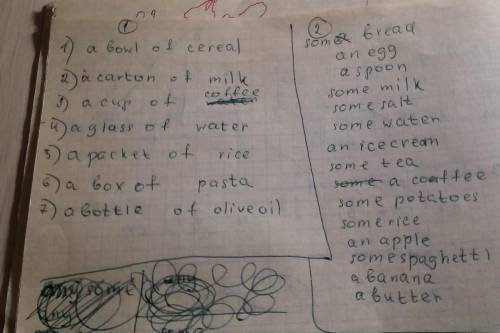 1
1) a bowl of cereal
2) a carton of milk
3) a cup of coffee
4) a glass of water
5) a packet of rice
6) a box of pasta
7) a bottle of olive oil
any some
any
any
2
some bread
an egg
a spoon
some milk
some salt
some water
an icecream
some tea
some a coffee
some potatoes
some rice
an apple
some spaghetti
a banana
a butter